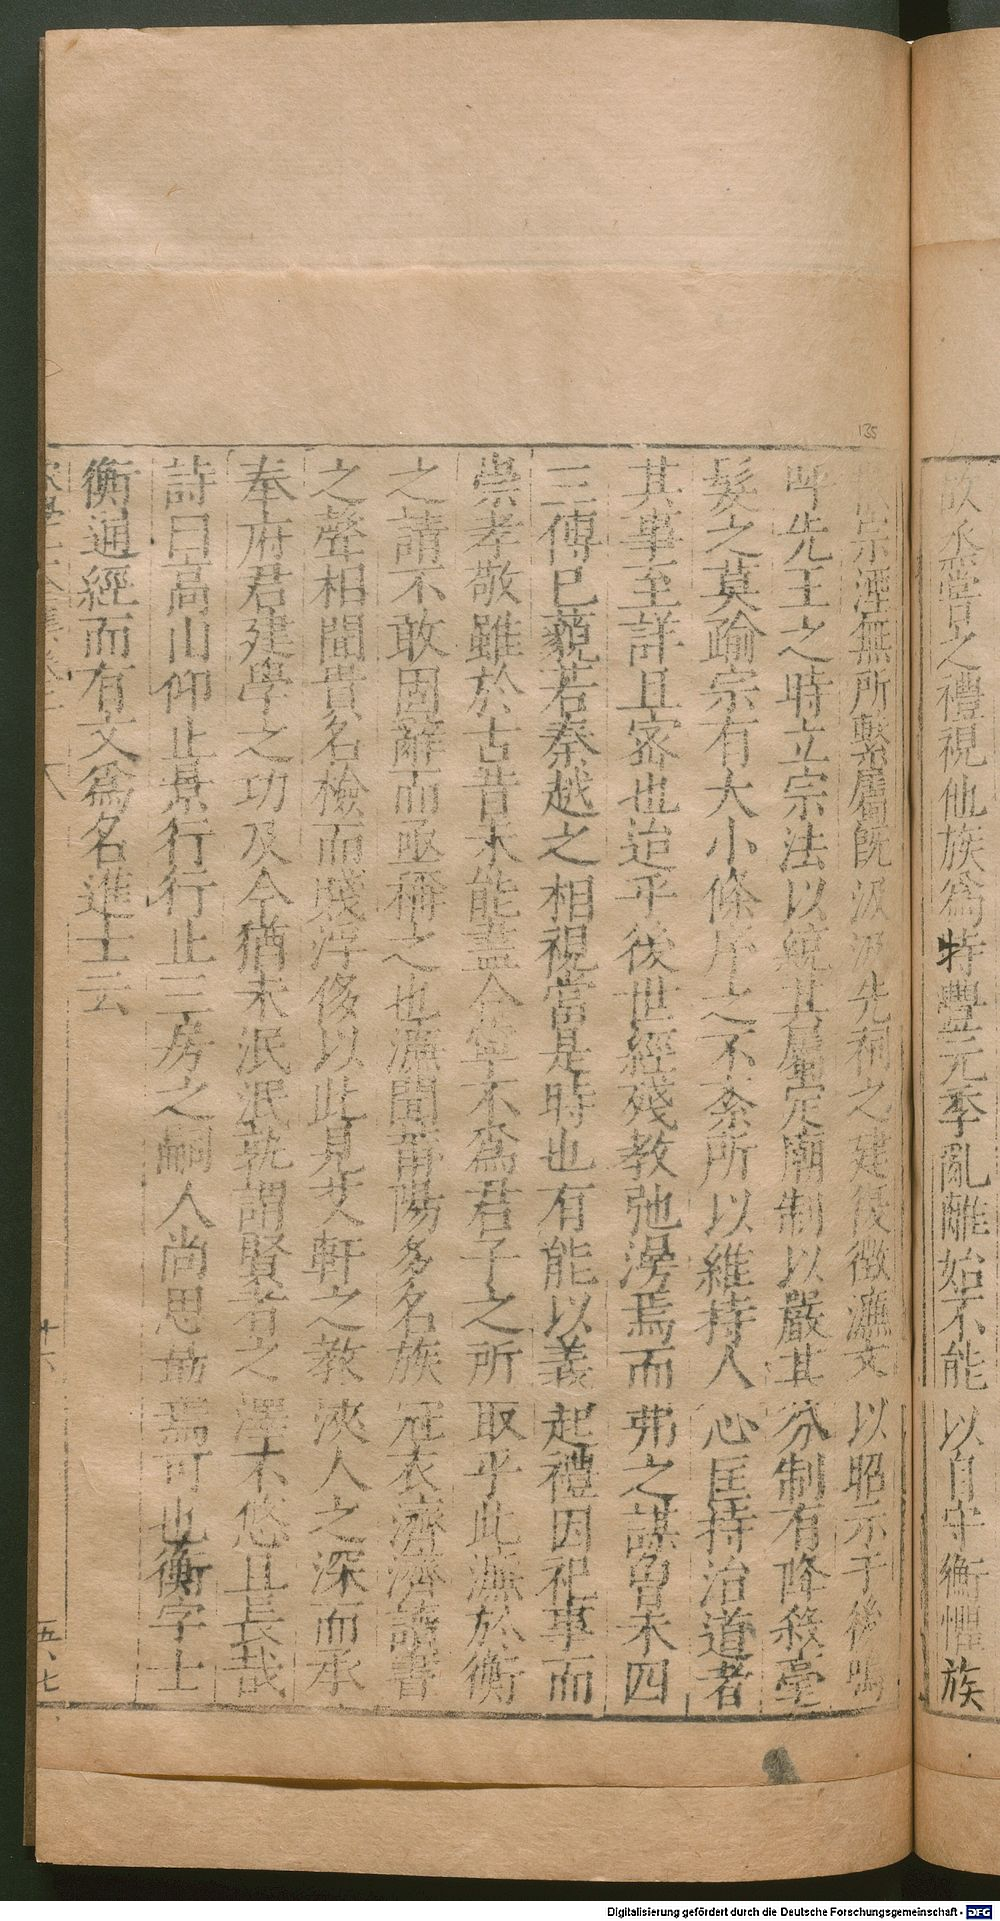 之禮視他族爲特豐元季亂離始不能以自守衡懼族
宗湮無所繫屬既汲汲先祠之建復徵濂文以昭示于後嗚
呼先王之時立宗法以統其屬定廟制以嚴其分制有降殺毫
髮之莫踰宗有大小條序之不紊所以維持人心匡持治道者
其事至詳且密也迨乎後世經殘教弛漫焉而弗之講魯未四
三傳已藐若秦越之相視當是時也有能以義起禮因祀事而
崇孝敬雖於古昔未能盡合寧不爲君子之所取乎此濂於衡
之請不敢固辭而亟稱之也濂聞莆陽多名族冠衣濟濟讀書
之聲相聞貴名檢而賤浮侈以此見艾軒之教浹人之深而承
奉府君建學之功及今猶未泯泯孰謂賢者之澤不悠且長哉
詩曰高山仰止景行行止三房之嗣人尚思勗焉可也衡字士
衡通經而有文爲名進士云
十六
五七
135
Digitalisierung gefördert durch die Deutsche Forschungsgemeinschaft - DFG